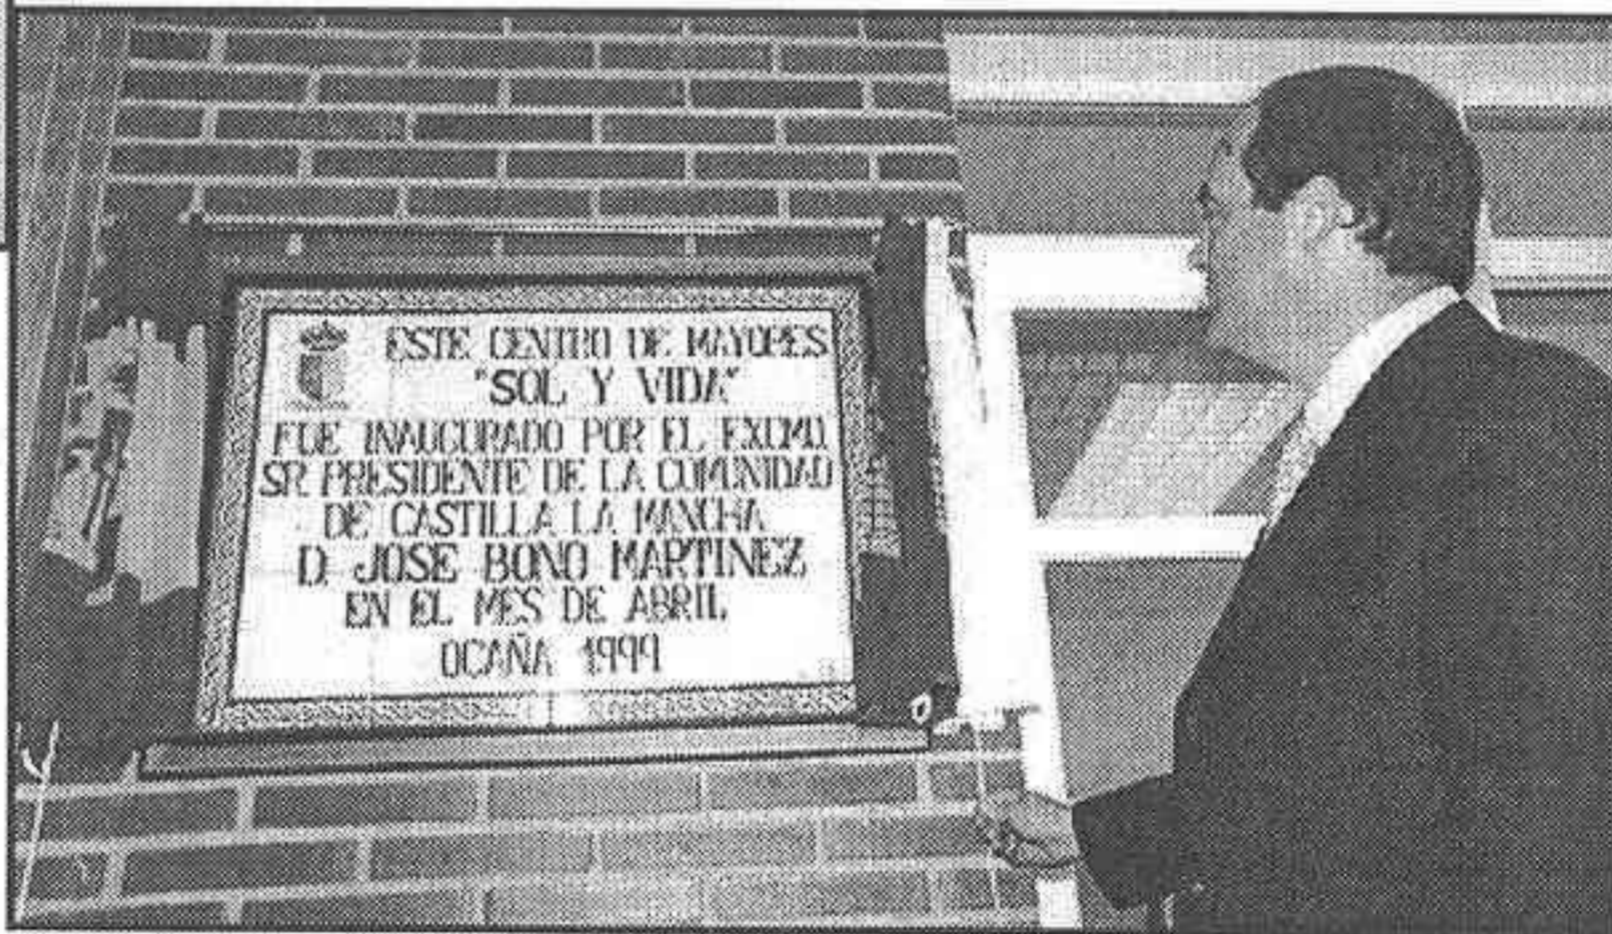 ESTE CENTRO DE MAYORES
"SOL Y VIDA"
FUE INAUGURADO POR EL EXCMO.
SR. PRESIDENTE DE LA COMUNIDAD
DE CASTILLA LA MANCHA
D. JOSE BONO MARTINEZ
EN EL MES DE ABRIL
OCAÑA 1999